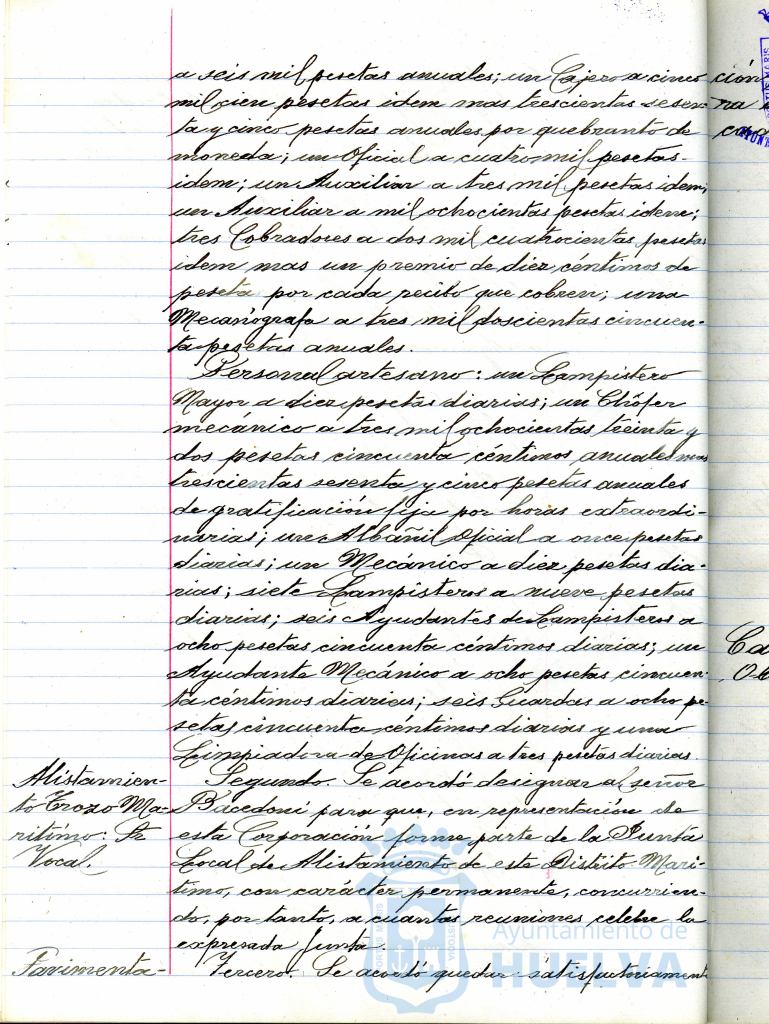 a seis mil pesetas anuales; un Cajero a cinco
mil cien pesetas idem mas trescientas sesen-
ta y cinco pesetas anuales por quebranto de
moneda; un Oficial a cuatro mil pesetas
idem; un Auxiliar a tres mil pesetas idem;
un Auxiliar a mil ochocientas pesetas idem;
tres Cobradores a dos mil cuatrocientas pesetas
idem mas un premio de diez céntimos de
peseta por cada recibo que cobren; una
Mecanógrafa a tres mil doscientas cincuen-
ta pesetas anuales.
Personal artesano: un Lampistero
Mayor a diez pesetas diarias; un Chófer
mecánico a tres mil ochocientas treinta y
dos pesetas cincuenta céntimos anuales mas
trescientas sesenta y cinco pesetas anuales
de gratificación fija por horas extraordi-
narias; un Albañil Oficial a once pesetas
diarias; un Mecánico a diez pesetas dia-
rias; siete Lampisteros a nueve pesetas
diarias; seis Ayudantes de Lampisteros a
ocho pesetas cincuenta céntimos diarias; un
Ayudante Mecánico a ocho pesetas cincuen-
ta céntimos diarias; seis Guardas a ocho pe-
setas cincuenta céntimos diarias y una
Limpiadora de Oficinas a tres pesetas diarias.
Alistamien-
to Trozo Ma-
rítimo.
Vocal.
Segundo. Se acordó designar al señor
Bacedoni para que, en representación de
esta Corporación forme parte de la Junta
Local de Alistamiento de este Distrito Marí-
timo, con carácter permanente, concurrien-
do, por tanto, a cuantas reuniones celebre la
expresada Junta.
Pavimenta-
Tercero. Se acordó quedar satisfactoriamente
Ayuntamiento de
HUELVA
ción
na
Ca
Ob